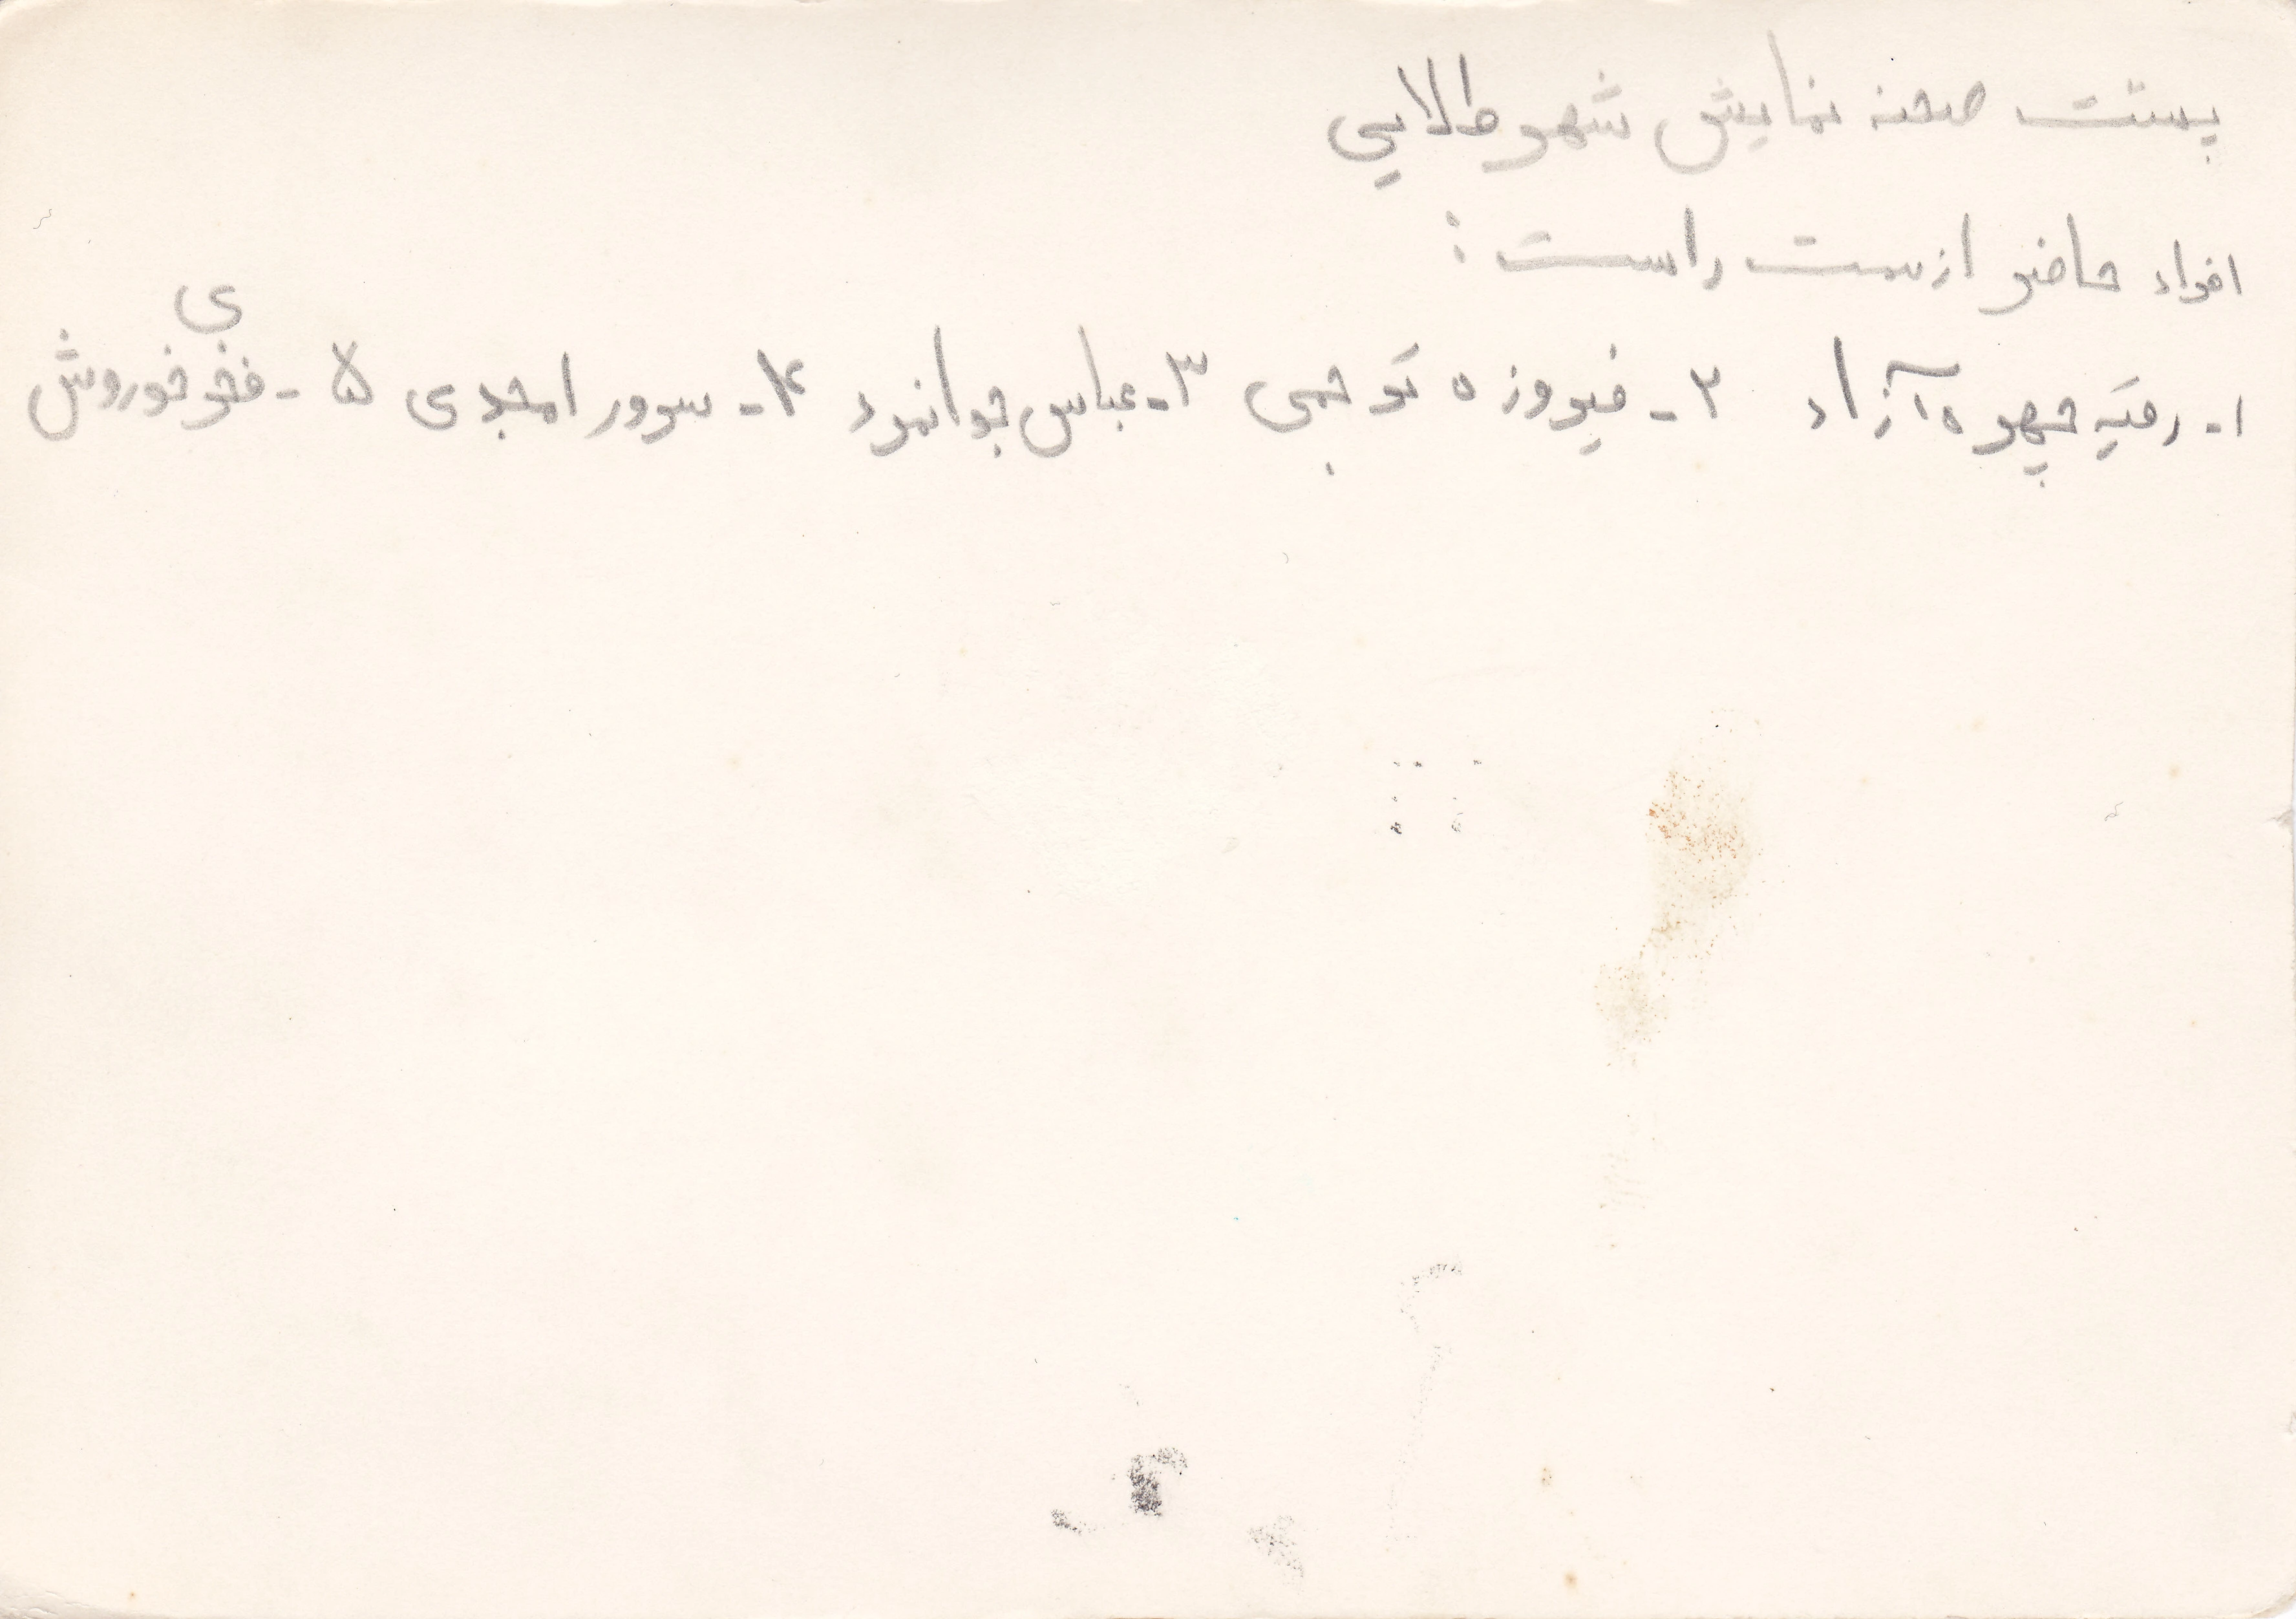 پشت صحنه نمایش شهر طلایی
افراد حاضر از سمت راست :
۱- رقیه چهره آزاد ۲- فیروزه ترجمی ۳- عباس جوانمرد ۴- سرور امجدی ۵- فخری خوروش